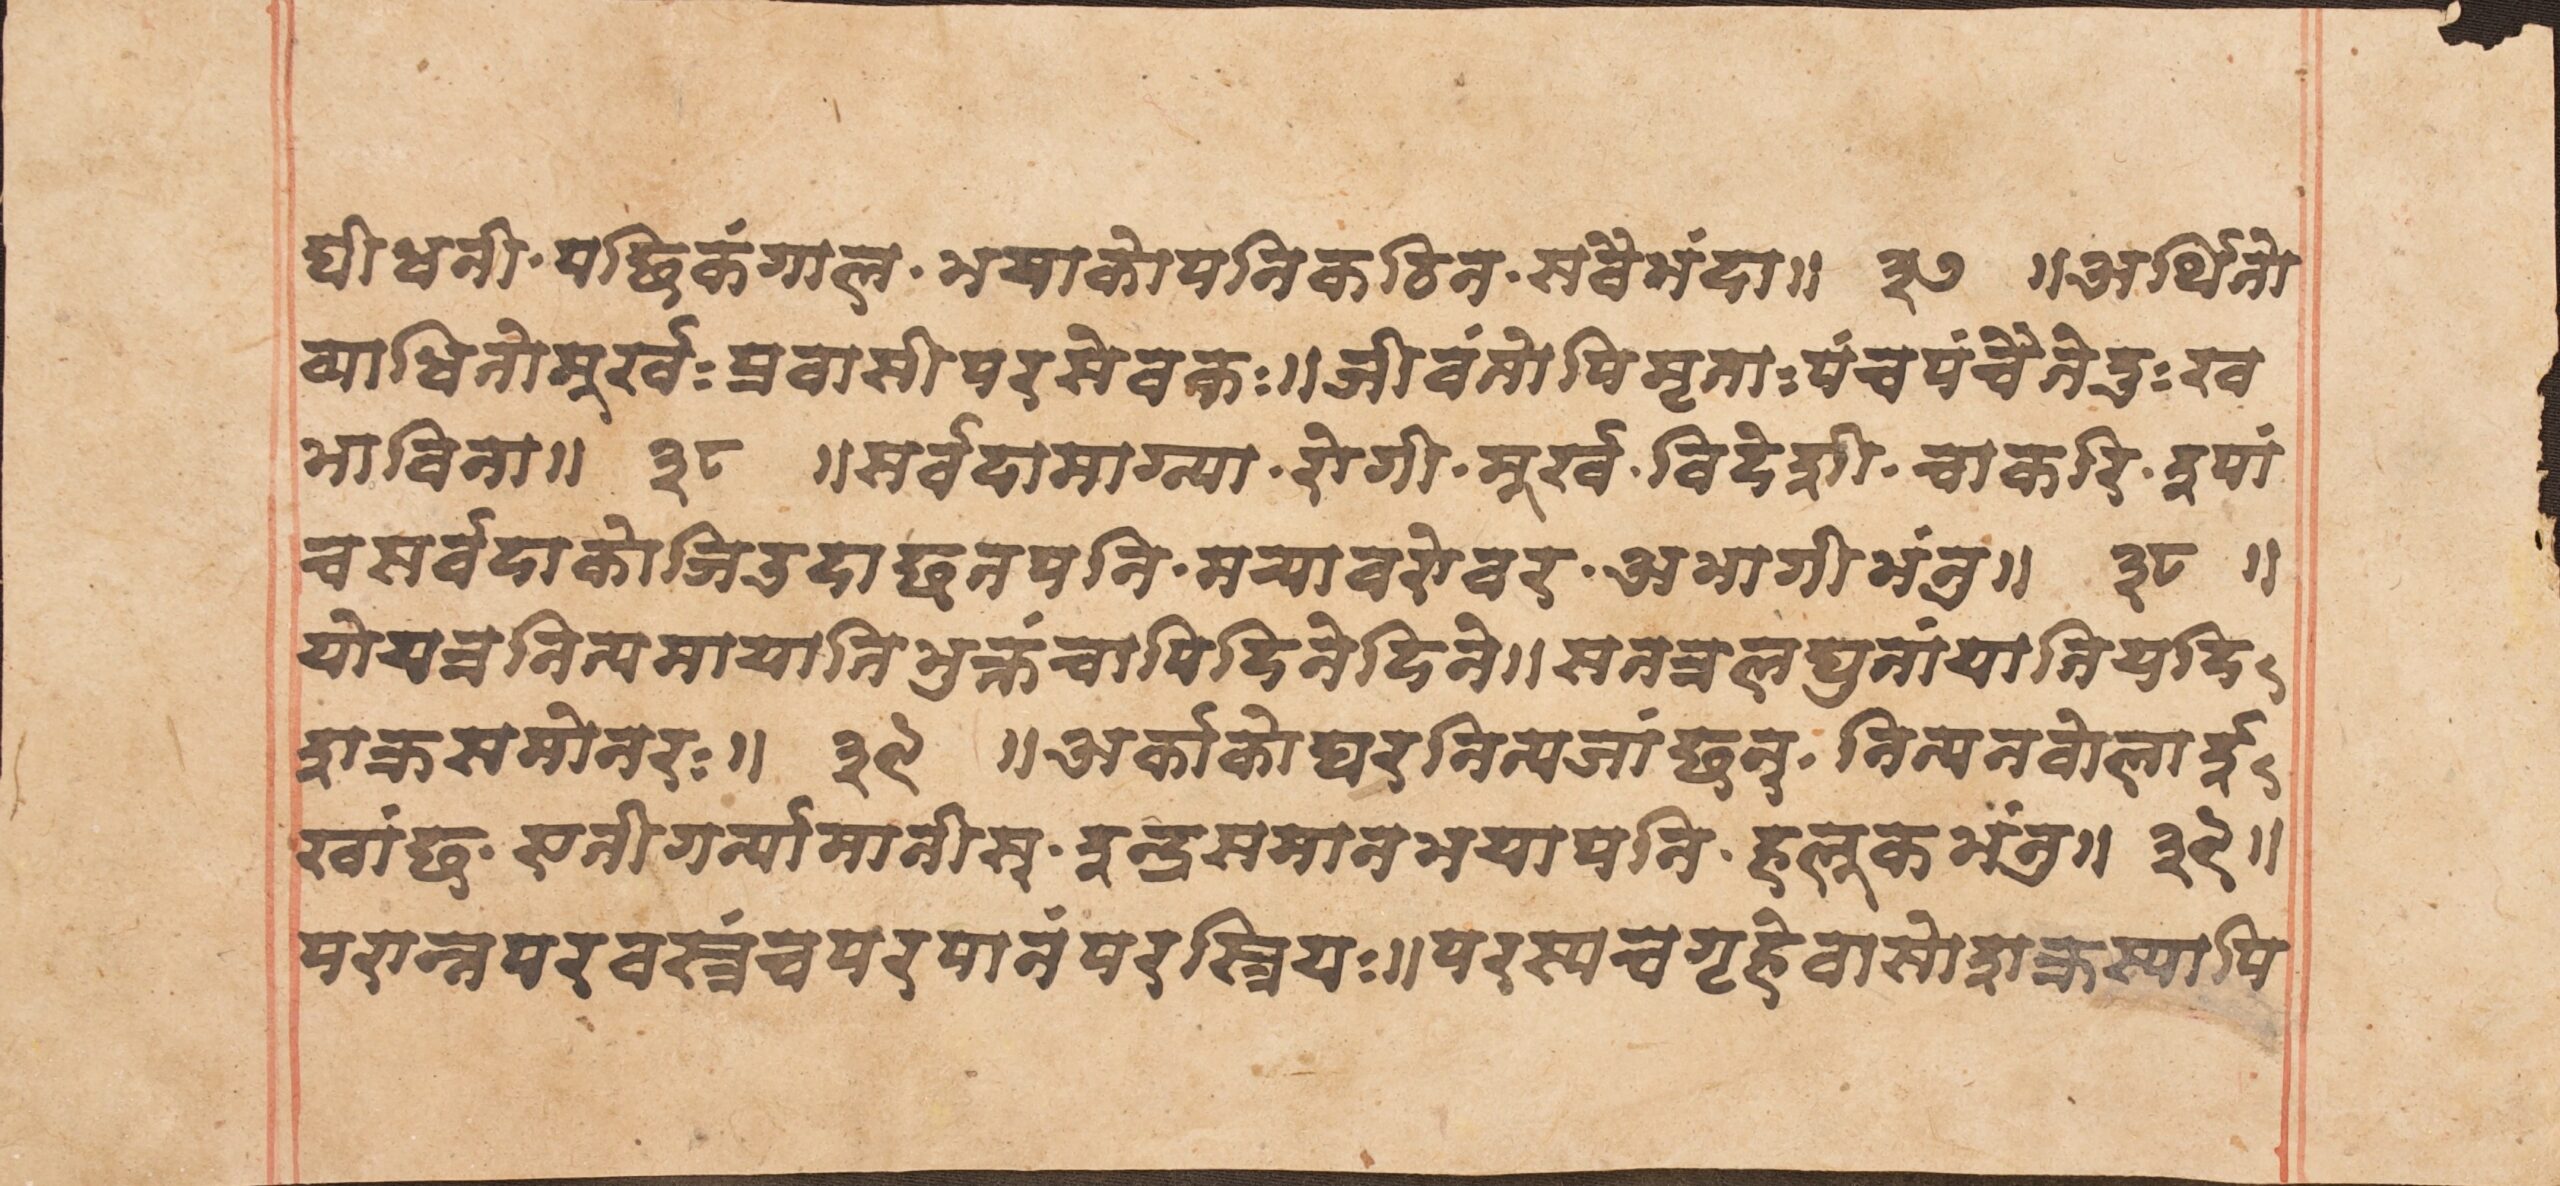 घीधनी· पछिकंगाल· भयाकोपनिकठिन· सवैभंदा॥ ३७ ॥अर्थिनो
व्याधिनोमुर्खः प्रवासीपरसेवकः॥जीवंतोपिमृताः पंचपंचैतेदुःख
भाविता॥ ३८ ॥सर्वदामाग्न्या· रोगी· मूर्ख· विदेशी· चाकरि· इपां
चसर्वदाकोजिउदाछनपनि· मर्‍यावरोवर· अभागीभंनु॥ ३८ ॥
योयत्रनित्यमायातिभुक्तंचापिदिनेदिने॥सतत्रलघुतांयातियदि
शक्रसमोनरः॥ ३९ ॥अर्काकोघरनित्यजांछन्· नित्यनवोलाई
खांछ· एतीगर्न्यामानीस्· इन्द्रसमानभयापनि· हलूकभंनु॥ ३९॥
परान्नपरवस्त्रंचपरपानंपरस्त्रियः॥परस्यचगृहेवासोशक्रस्यापि